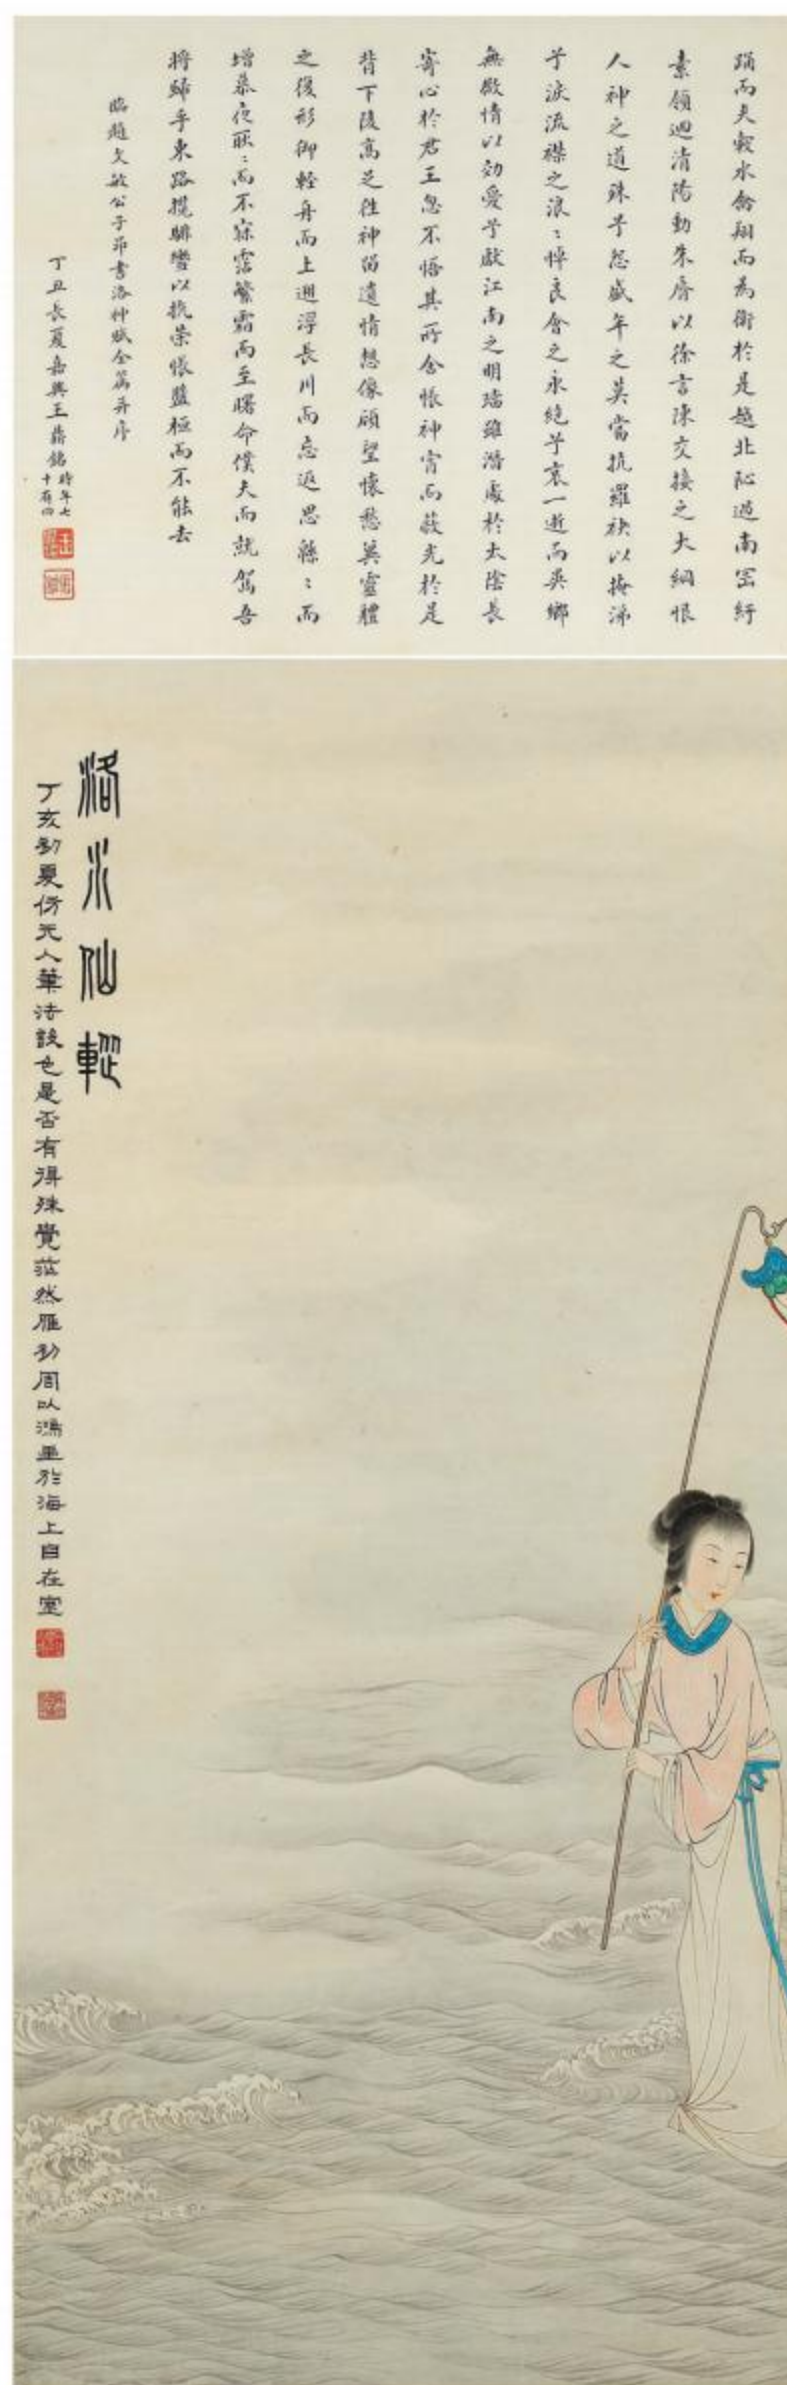 踊而夾轂水禽翔而為衛於是越北沚過南岡紆
素領迴清陽動朱脣以徐言陳交接之大綱恨
人神之道殊兮怨盛年之莫當抗羅袂以掩涕
兮淚流襟之浪〻悼良會之永絕兮哀一逝而異鄉
無微情以効愛兮獻江南之明璫雖潛處於太陰長
寄心於君王忽不悟其所舍悵神宵而蔽光於是
背下陵高足往神留遺情想像顧望懷愁冀靈體
之復形御輕舟而上遡浮長川而忘返思緜〻而
增慕夜耿〻而不寐霑繁霜而至曙命僕夫而就駕吾
將歸乎東路攬騑轡以抗策悵盤桓而不能去
臨趙文敏公子昂書洛神賦全篇并序
丁丑長夏嘉興王蘅銘時年七十有四
洛水仙蹤
丁亥初夏仿元人筆法設色是否有得殊覺茫然雁初周以鴻畫於海上自在室